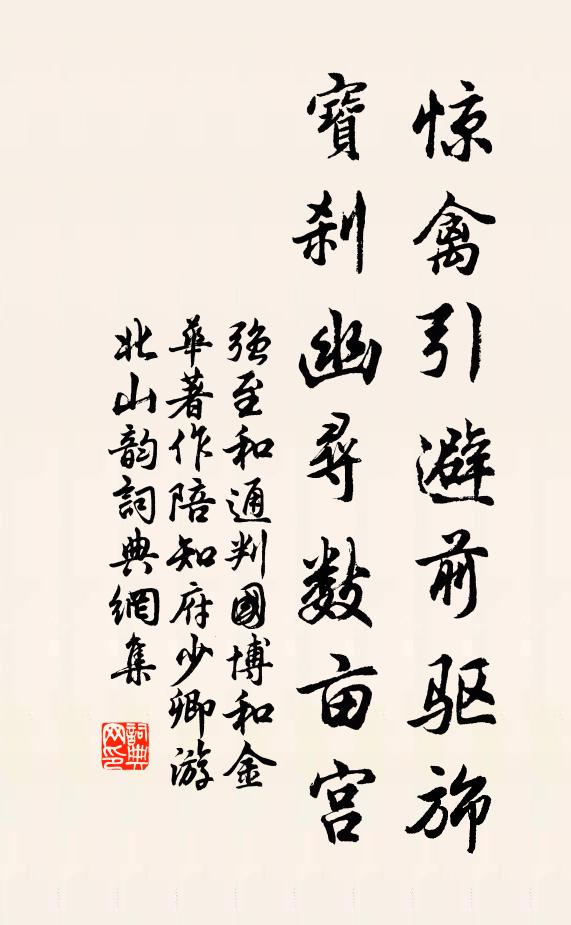 惊禽引避前驱斾
寶刹幽尋数亩宫
强至和通判國博和金
華著作陪知府少卿游
北山韵詞典網集
詞典网印